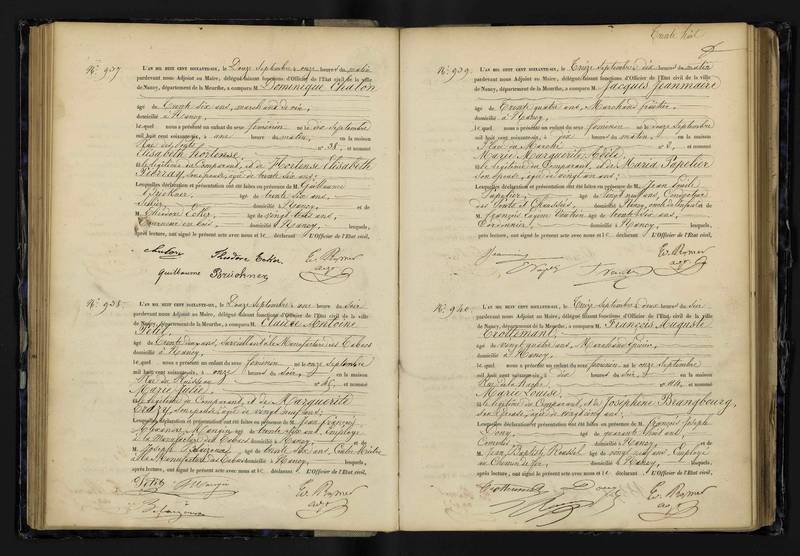 N°. 937
L'AN MIL HUIT CENT SOIXANTE-SIX, le Douze Septembre à onze heures du matin
pardevant nous Adjoint au Maire, délégué faisant fonctions d'Officier de l'Etat civil de la ville
de Nancy, département de la Meurthe, a comparu M. Dominique Chalon
âgé de trente six ans, marchand de vin,
domicilié à Nancy,
lequel nous a présenté un enfant du sexe féminin né le dix Septembre
mil huit cent soixante-six, à une heure du matin, en la maison
N° 38, et nommé
Elisabeth Hortense,
fille légitime du Comparant, et de Hortense Elisabeth
son épouse, âgée de trente six ans;
Lesquelles déclaration et présentation ont été faites en présence de M. Guillaume
Brückner, âgé de trente six ans,
Sellier, domicilié à Nancy, et de
M. Théodore Colier, âgé de vingt trois ans,
Tourneur en bois, domicilié à Nancy, lesquels,
après lecture, ont signé le présent acte avec nous et le déclarant. L'Officier de l'Etat civil,
Chalon Théodore Colier E. Rymer
Guillaume Brückner adj.
N°. 938
L'AN MIL HUIT CENT SOIXANTE-SIX, le Douze Septembre à une heure du soir
pardevant nous Adjoint au Maire, délégué faisant fonctions d'Officier de l'Etat civil de la ville
de Nancy, département de la Meurthe, a comparu M. Claude Antoine
Petit,
âgé de trente deux ans, surveillant à la Manufacture des Tabacs
domicilié à Nancy,
lequel nous a présenté un enfant du sexe féminin né le onze Septembre
mil huit cent soixante-six, à onze heures du soir, en la maison
Rue du Ruisseau N° et nommé
Marie Julie,
fille légitime du Comparant, et de Marguerite
son épouse, âgée de vingt neuf ans;
Lesquelles déclaration et présentation ont été faites en présence de M. Jean François
Alexandre Mangin âgé de trente six ans, Employé
à la Manufacture des Tabacs domicilié à Nancy, et de
M. Joseph âgé de trente six ans, Contre Maître
à la Manufacture des Tabacs domicilié à Nancy, lesquels,
après lecture, ont signé le présent acte avec nous et le déclarant. L'Officier de l'Etat civil,
Petit Mangin E. Rymer
adj.
N°. 939.
L'AN MIL HUIT CENT SOIXANTE-SIX, le Treize Septembre à dix heures du matin
pardevant nous Adjoint au Maire, délégué faisant fonctions d'Officier de l'Etat civil de la ville
de Nancy, département de la Meurthe, a comparu M. Jacques Jeanmaire
âgé de trente quatre ans, Marchand fruitier,
domicilié à Nancy,
lequel nous a présenté un enfant du sexe féminin né le douze Septembre
mil huit cent soixante-six, à heures du matin, en la maison
Place du Marché N° 2, et nommé
Marie Marguerite
fille légitime du Comparant, et de Maria Papelier
son épouse, âgée de vingt un ans;
Lesquelles déclaration et présentation ont été faites en présence de M. Jean
Papelier, âgé de vingt neuf ans, Conducteur
des Ponts et Chaussées, domicilié à et de
M. François Eugène âgé de ans,
Cordonnier, domicilié à Nancy, lesquels,
après lecture, ont signé le présent acte avec nous et le déclarant. L'Officier de l'Etat civil,
E. Rymer
adj.
N°. 940.
L'AN MIL HUIT CENT SOIXANTE-SIX, le Treize Septembre à deux heures du soir
pardevant nous Adjoint au Maire, délégué faisant fonctions d'Officier de l'Etat civil de la ville
de Nancy, département de la Meurthe, a comparu M. François Auguste
Trottemant,
âgé de vingt quatre ans, Marchand
domicilié à Nancy,
lequel nous a présenté un enfant du sexe féminin né le onze Septembre
mil huit cent soixante-six, à dix heures du soir, en la maison
Rue de la N° 114, et nommé
Marie Louise,
fille légitime du Comparant, et de Joséphine Brangbourg,
son épouse, âgée de vingt cinq ans;
Lesquelles déclaration et présentation ont été faites en présence de M. François Joseph
Dony, âgé de quarante huit ans,
domicilié à Nancy, et de
M. Jean Baptiste Roussel âgé de vingt neuf ans, Employé
au Chemin de fer, domicilié à Nancy, lesquels,
après lecture, ont signé le présent acte avec nous et le déclarant. L'Officier de l'Etat civil,
Trottemant Dony E. Rymer
adj.